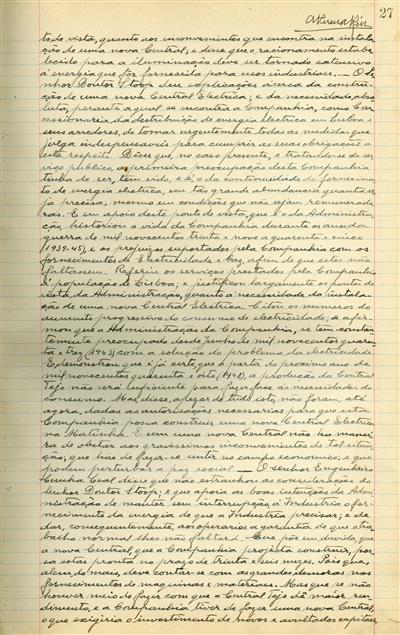 27
to de vista, quanto aos inconvenientes que encontra na instala-
ção de uma nova Central, e disse que o racionamento estabe-
lecido para a iluminação deve ser tornado extensivo
à energia que for fornecida para usos industriais. — O Se-
nhor Doutor Stoop deu explicações acerca da constru-
ção de uma nova Central Electrica, e da necessidade abso-
luta, perante a qual se encontra a Companhia, como Con-
cessionaria da destribuição de energia electrica em Lisboa e
seus arredores, de tomar urgentemente todas as medidas que
julga indespensaveis para cumprir as suas obrigações a
este respeito. Disse que, no caso presente, e tratando-se de ser-
viço publico, a primeira preocupação desta Companhia
tinha de ser, tem sido, e é, a da continuidade do fornecimen-
to de energia electrica, em tão grande abundancia quanto se-
ja precisa, mesmo em condições que não sejam remunerado-
ras. E em apoio deste ponto de vista, que é o da Administra-
ção, historiou a vida da Companhia durante os anos de
guerra de mil novecentos trinta e nove a quarenta e cinco
(1939-45), e os prejuizos suportados pela Companhia com os
fornecimentos de Electricidade e Gaz, afim de que estes não
faltassem. Referiu os serviços prestados pela Companhia
à população de Lisboa; e justificou largamente os pontos de
vista da Administração, quanto à necessidade da instala-
ção de uma nova Central Electrica. Citou os numeros do
aumento progressivo do consumo de electricidade; e afir-
mou que a Administração da Companhia, se tem constan-
temente preocupado desde Junho de mil novecentos quaren-
ta e trez (1943) com a solução do problema da electricidade.
E demonstrou que é já certo que a partir do proximo ano de
mil novecentos quarenta e oito (1948), a produção da Central
Tejo não será suficiente para fazer face às necessidades do
consumo. Mas, disse, apezar de tudo isto, não foram, até
agora, dadas as autorisações necessarias para que esta
Companhia possa construir uma nova Central Electrica
na Matinha. E sem uma nova Central não ha manei-
ra de obstar aos gravissimos inconvenientes de tal situa-
ção, que hão de fazer-se sentir no campo economico, e que
podem perturbar a paz social. — O Senhor Engenheiro
Cunha Leal disse que não estranhou as considerações do
Senhor Doutor Stoop; e que apoia as boas intenções da Admi-
nistração de manter, sem interrupção, à Industria o for-
necimento da energia de que a Industria precisar; e de
dar, consequentemente, aos operarios a garantia de que o tra-
balho normal lhes não faltará. Mas põe em duvida, que
a nova Central, que a Companhia projecta construir, pos-
sa estar pronta no prazo de trinta e seis mezes. Pois que,
alem do mais, deve contar-se com as grandes demoras nos
fornecimentos de maquinas e materiais. Mas que se não
houver meio de fazer com que a Central Tejo dê maior ren-
dimento, e a Companhia tiver de fazer uma nova Central,
o que exigiria o investimento de novos e avultados capitaes,